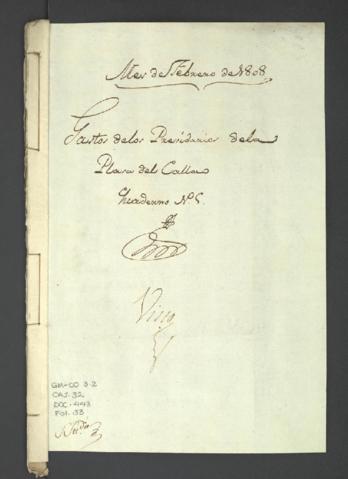 Mes de Febrero de 1808
Gastos delos Presidarios dela
Plasa del Callao
Quaderno Nº 5
Visto
GM-CO 3.2
CAJ. 32
DOC. 443
Fol. 33